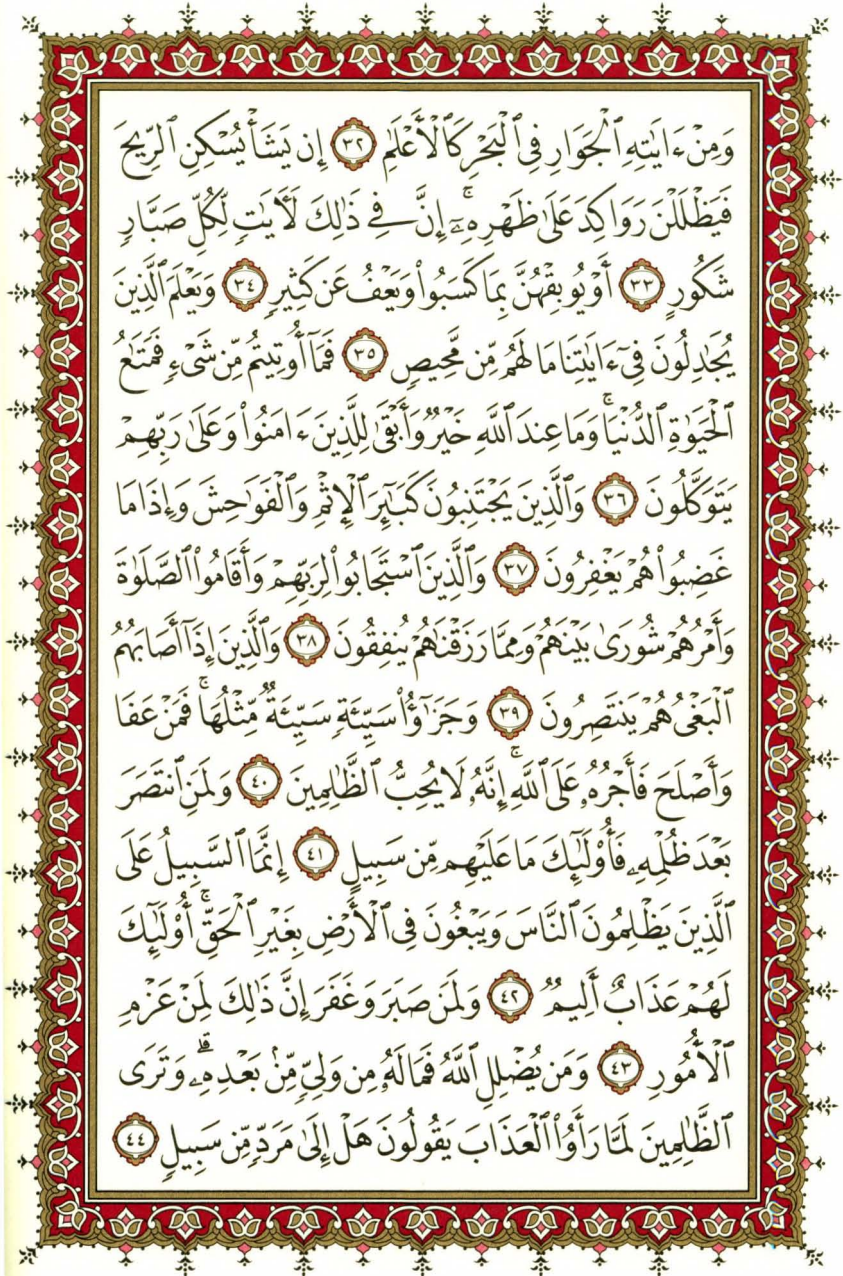 وَمِنْ ءَايَٰتِهِ ٱلْجَوَارِ فِى ٱلْبَحْرِ كَٱلْأَعْلَٰمِ ٣٢ إِن يَشَأْ يُسْكِنِ ٱلرِّيحَ
فَيَظْلَلْنَ رَوَاكِدَ عَلَىٰ ظَهْرِهِۦٓ ۚ إِنَّ فِى ذَٰلِكَ لَءَايَٰتٍ لِّكُلِّ صَبَّارٍ
شَكُورٍ ٣٣ أَوْ يُوبِقْهُنَّ بِمَا كَسَبُوا۟ وَيَعْفُ عَن كَثِيرٍ ٣٤ وَيَعْلَمَ ٱلَّذِينَ
يُجَٰدِلُونَ فِىٓ ءَايَٰتِنَا مَا لَهُم مِّن مَّحِيصٍ ٣٥ فَمَآ أُوتِيتُم مِّن شَىْءٍ فَمَتَٰعُ
ٱلْحَيَوٰةِ ٱلدُّنْيَا ۖ وَمَا عِندَ ٱللَّهِ خَيْرٌ وَأَبْقَىٰ لِلَّذِينَ ءَامَنُوا۟ وَعَلَىٰ رَبِّهِمْ
يَتَوَكَّلُونَ ٣٦ وَٱلَّذِينَ يَجْتَنِبُونَ كَبَٰٓئِرَ ٱلْإِثْمِ وَٱلْفَوَٰحِشَ وَإِذَا مَا
غَضِبُوا۟ هُمْ يَغْفِرُونَ ٣٧ وَٱلَّذِينَ ٱسْتَجَابُوا۟ لِرَبِّهِمْ وَأَقَامُوا۟ ٱلصَّلَوٰةَ
وَأَمْرُهُمْ شُورَىٰ بَيْنَهُمْ وَمِمَّا رَزَقْنَٰهُمْ يُنفِقُونَ ٣٨ وَٱلَّذِينَ إِذَآ أَصَابَهُمُ
ٱلْبَغْىُ هُمْ يَنتَصِرُونَ ٣٩ وَجَزَٰٓؤُا۟ سَيِّئَةٍ سَيِّئَةٌ مِّثْلُهَا ۖ فَمَنْ عَفَا
وَأَصْلَحَ فَأَجْرُهُۥ عَلَى ٱللَّهِ ۚ إِنَّهُۥ لَا يُحِبُّ ٱلظَّٰلِمِينَ ٤٠ وَلَمَنِ ٱنتَصَرَ
بَعْدَ ظُلْمِهِۦ فَأُو۟لَٰٓئِكَ مَا عَلَيْهِم مِّن سَبِيلٍ ٤١ إِنَّمَا ٱلسَّبِيلُ عَلَى
ٱلَّذِينَ يَظْلِمُونَ ٱلنَّاسَ وَيَبْغُونَ فِى ٱلْأَرْضِ بِغَيْرِ ٱلْحَقِّ ۚ أُو۟لَٰٓئِكَ
لَهُمْ عَذَابٌ أَلِيمٌ ٤٢ وَلَمَن صَبَرَ وَغَفَرَ إِنَّ ذَٰلِكَ لَمِنْ عَزْمِ
ٱلْأُمُورِ ٤٣ وَمَن يُضْلِلِ ٱللَّهُ فَمَا لَهُۥ مِن وَلِىٍّ مِّنۢ بَعْدِهِۦ ۗ وَتَرَى
ٱلظَّٰلِمِينَ لَمَّا رَأَوُا۟ ٱلْعَذَابَ يَقُولُونَ هَلْ إِلَىٰ مَرَدٍّ مِّن سَبِيلٍ ٤٤